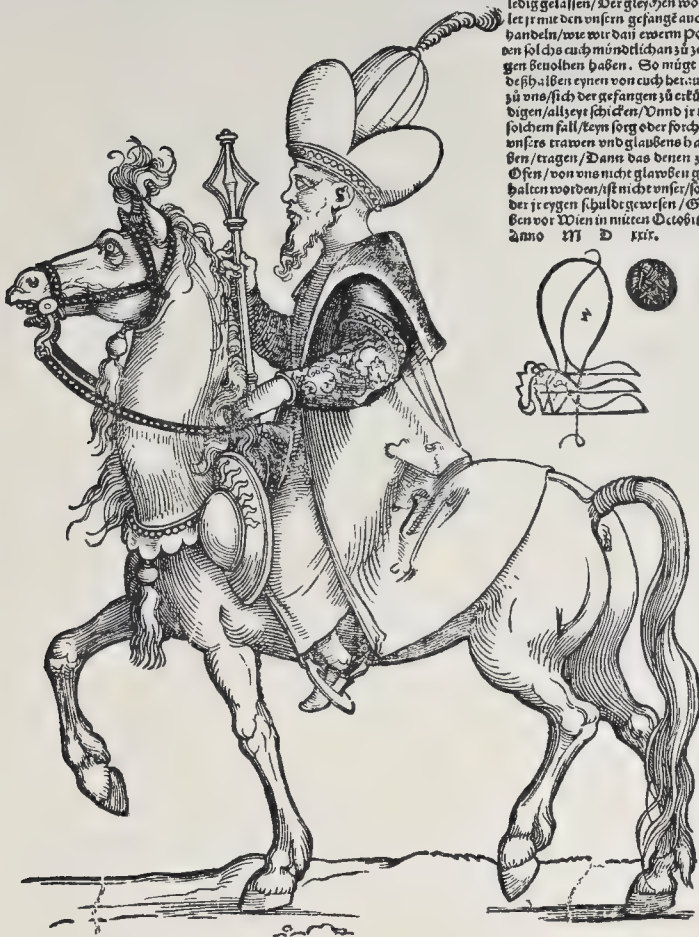 ledig gelassen/Der gleychen wo
let jr mit den vnsern gefangē auc
handeln/wie wir dañ ewerm Po
ten solchs euch mündtlich an zů ze
gen beuolhen haben. So müge
deßhalben eynen von euch herau
zů vns/sich der gefangen zů erkü
digen/allzeyt schicken/Vnnd jr i
solchem fall/keyn sorg oder forch
vnsers trawen vnd glaubens ha
ben/tragen/Dann das denen z
Ofen/von vns nicht glawben g
halten worden/ist nicht vnser/so
der jr eygen schuldt gewesen/G
ben vor Wien in mitten Octobris
Anno M D xxix.